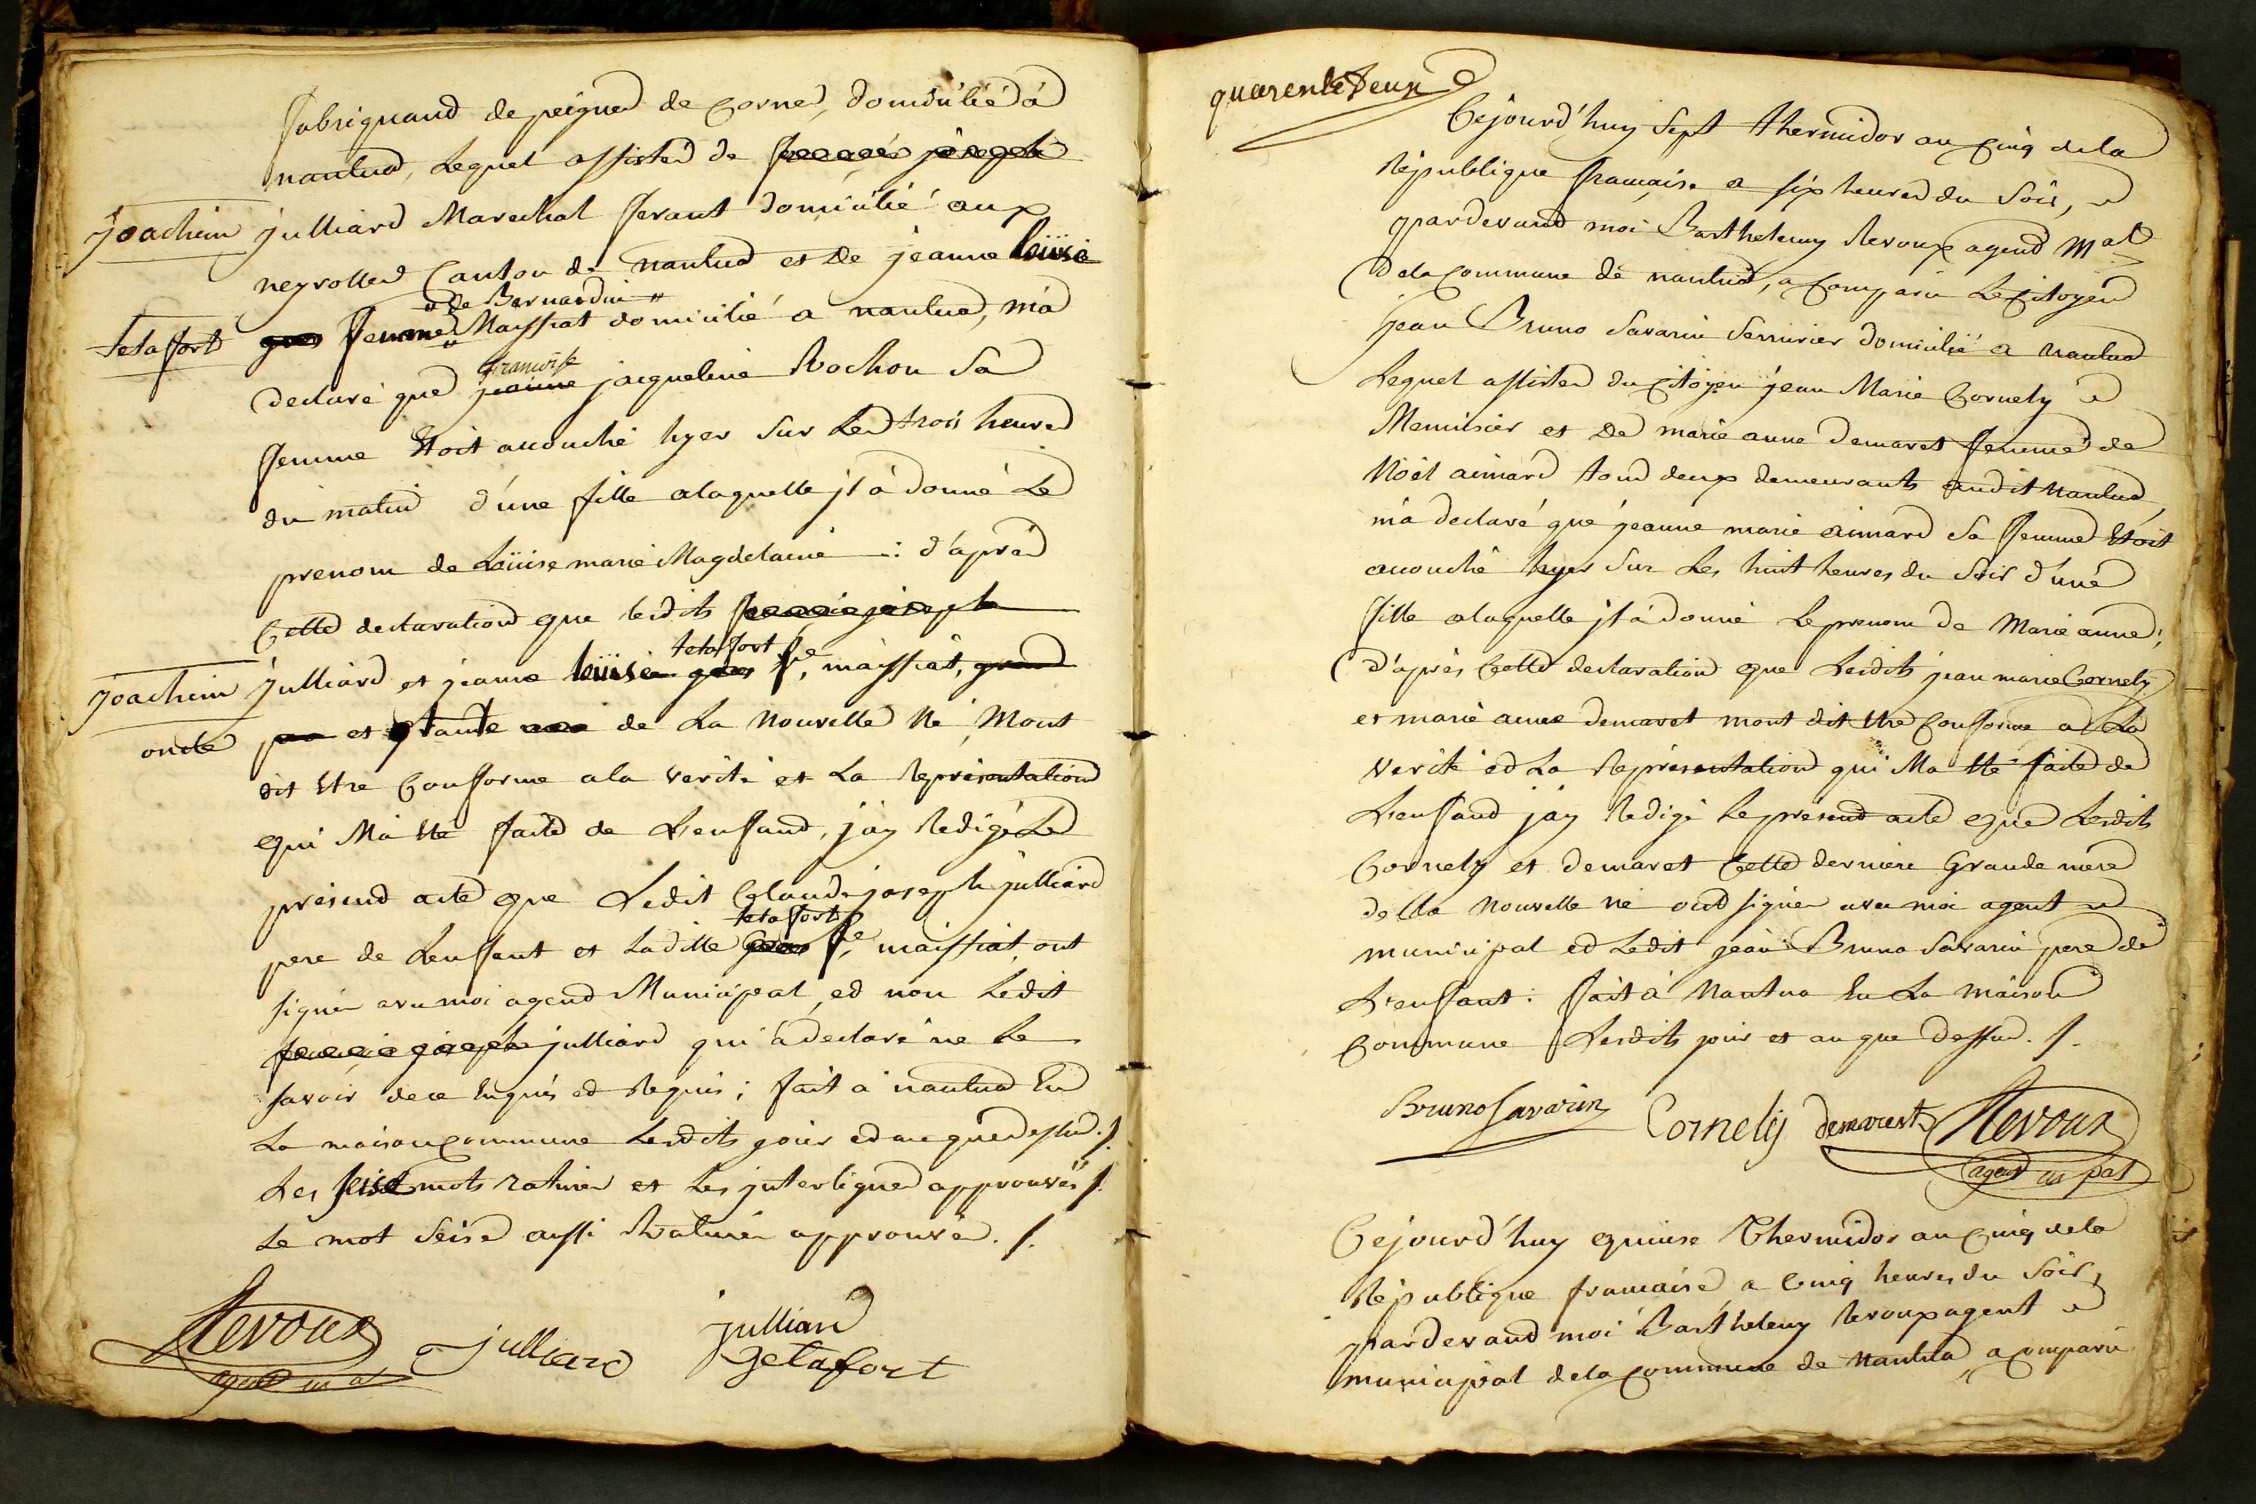 fabriquand de peignes de Cornes, domicilié à
nantua, Lequel assisté de
joachim julliard Marechal ferant domicilié aux
neyrolles Canton de nantua et De jeanne louise
" de Bernardin "
tetafort femme Maissiat domicilié a nantua, m'a
francoise
declaré que jeanne jacqueline Rochon Sa
femme Etoit accouché hyer Sur Les trois heures
du matin d'une fille a laquelle jl à donné Le
prenom de Loüise marie Magdelaine : d'après
Cette declaration que lesdits
tetafort
joachim julliard et jeanne loüise fe, maissiat,
oncle et tante de La Nouvelle Né, Mont
dit Etre Conforme a la verité et La Representation
qui Ma Eté faite de L'enfand, j'ay Redigé Le
présend acte que Ledit Claude joseph julliard
tetafort
pere de Lenfant et Ladite fe, maissiat, ont
signé avec moi agend Municipal, ed non Ledit
julliard qui à declaré ne Le
savoir de ce Enquis ed Requis ; fait a nantua En
La maison Commune Lesdits jour ed an que dessus ./.
Les seise mots ratures et Les jnterlignes approuvés ./.
Le mot Seise aussi Raturé approuvé. ./.
Revoux
agend m al
julliard
julliard
Tetafort
quarente Deux
Cejourd'huy Sept thermidor an Cinq de la
République française a six heures du Soir,
pardevand moi Barthelemy Revoux agend Mal
de la Commune de nantua, a Comparu Le Citoyen
jean Bruno Savarin Serrurier domicilié a nantua
Lequel assisté du Citoyen jean Marie Cornely
Menuisier et De marie anne demaret femme de
Noël aimard tous deux demeurants audit Nantua
m'a declaré que jeanne marie aimard Sa femme Etoit
accouché hyer Sur Les huit heures du Soir d'une
fille a laquelle jl à donné Le prenom de Marie anne ;
d'après Cette declaration que Lesdits jean marie Cornely
et marie anne demaret mont dit Etre Conforme a La
verité ed La Représentation qui Ma Eté faite de
L'enfand j'ay Redigé Le présend acte que Lesdits
Cornely et demaret Cette derniere Grande mere
de La Nouvelle né ond signé avec moi agent
municipal ed Ledit jean Bruno Savarin pere de
L'enfant : fait à Nantua En La maison
Commune Lesdits jour et an que dessus ./.
Bruno Savarin Cornely demarest Revoux
agend m pal
Cejourd'huy quinse Thermidor an Cinq de la
République francaise, a Cinq heures du Soir,
pardevand moi Barthelemy Revoux agent
municipal de la Commune de Nantua, a Comparu